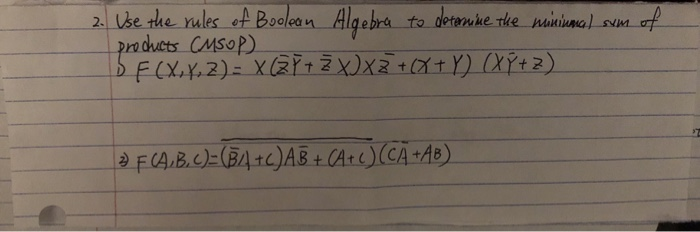 2. Use the rules of Boolean Algebra to determine the minimal sum of
products (MSOP)
1) F(X,Y,Z) = X(Z̅Y̅ + Z̅X)XZ̅ + (X+Y) (XY̅+Z)
2) F(A,B,C)=(B̅A+C)AB̅ + (A+C)(C̅A̅+AB)